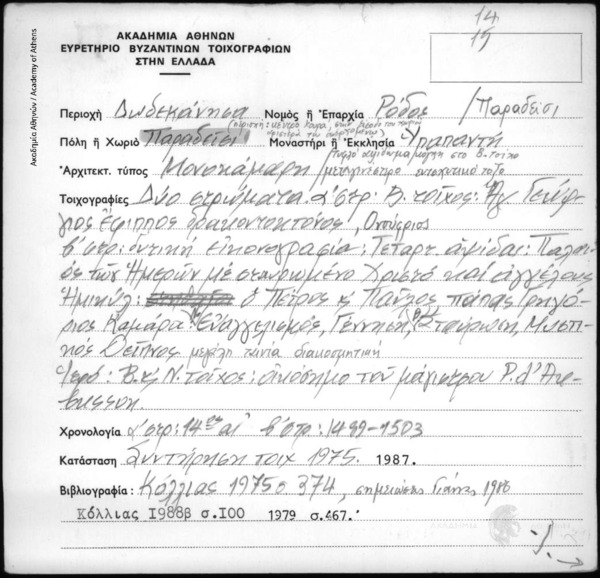 14
15
ΑΚΑΔΗΜΙΑ ΑΘΗΝΩΝ
ΕΥΡΕΤΗΡΙΟ ΒΥΖΑΝΤΙΝΩΝ ΤΟΙΧΟΓΡΑΦΙΩΝ
ΣΤΗΝ ΕΛΛΑΔΑ
Ακαδημία Αθηνών / Academy of Athens
Περιοχή Δωδεκάνησα Νομός ή Επαρχία Ρόδος /Παραδείσι
Πόλη ή Χωριό Παραδείσι Μοναστήρι ή Εκκλησία Υπαπαντή
Αρχιτεκτ. τύπος Μονοκάμαρη / μεταγενέστερο ενισχυτικό τόξο
Τοιχογραφίες Δύο στρώματα. α'στρ: Β. τοίχος: Άγ. Γεώρ-
γιος έφιππος δρακοντοκτόνος, Ονούφριος
β'στρ: δυτική εικονογραφία: Τεταρτ. αψίδας: Παλαι-
ός των Ημερών με σταυρωμένο Χριστό και αγγέλους
Ημικύλ: ο Πέτρος κ' Παύλος πάπας Γρηγό-
ριος Καμάρα: Ευαγγελισμός, Γέννηση, Σταύρωση, Μυστι-
κός Δείπνος μεγάλη ταινία διακοσμητική
Β. κ' Ν. τοίχος: οικόσημο του μάγιστρου P. d'Au-
busson.
Χρονολογία α'στρ: 14ος αι β'στρ: 1499-1503
Κατάσταση Συντήρηση τοιχ 1975. 1987.
Βιβλιογραφία: Κόλλιας 1975σ 374, σημειώσεις Γιάννη 1986
Κόλλιας 1988β σ.100 1979 σ.467.